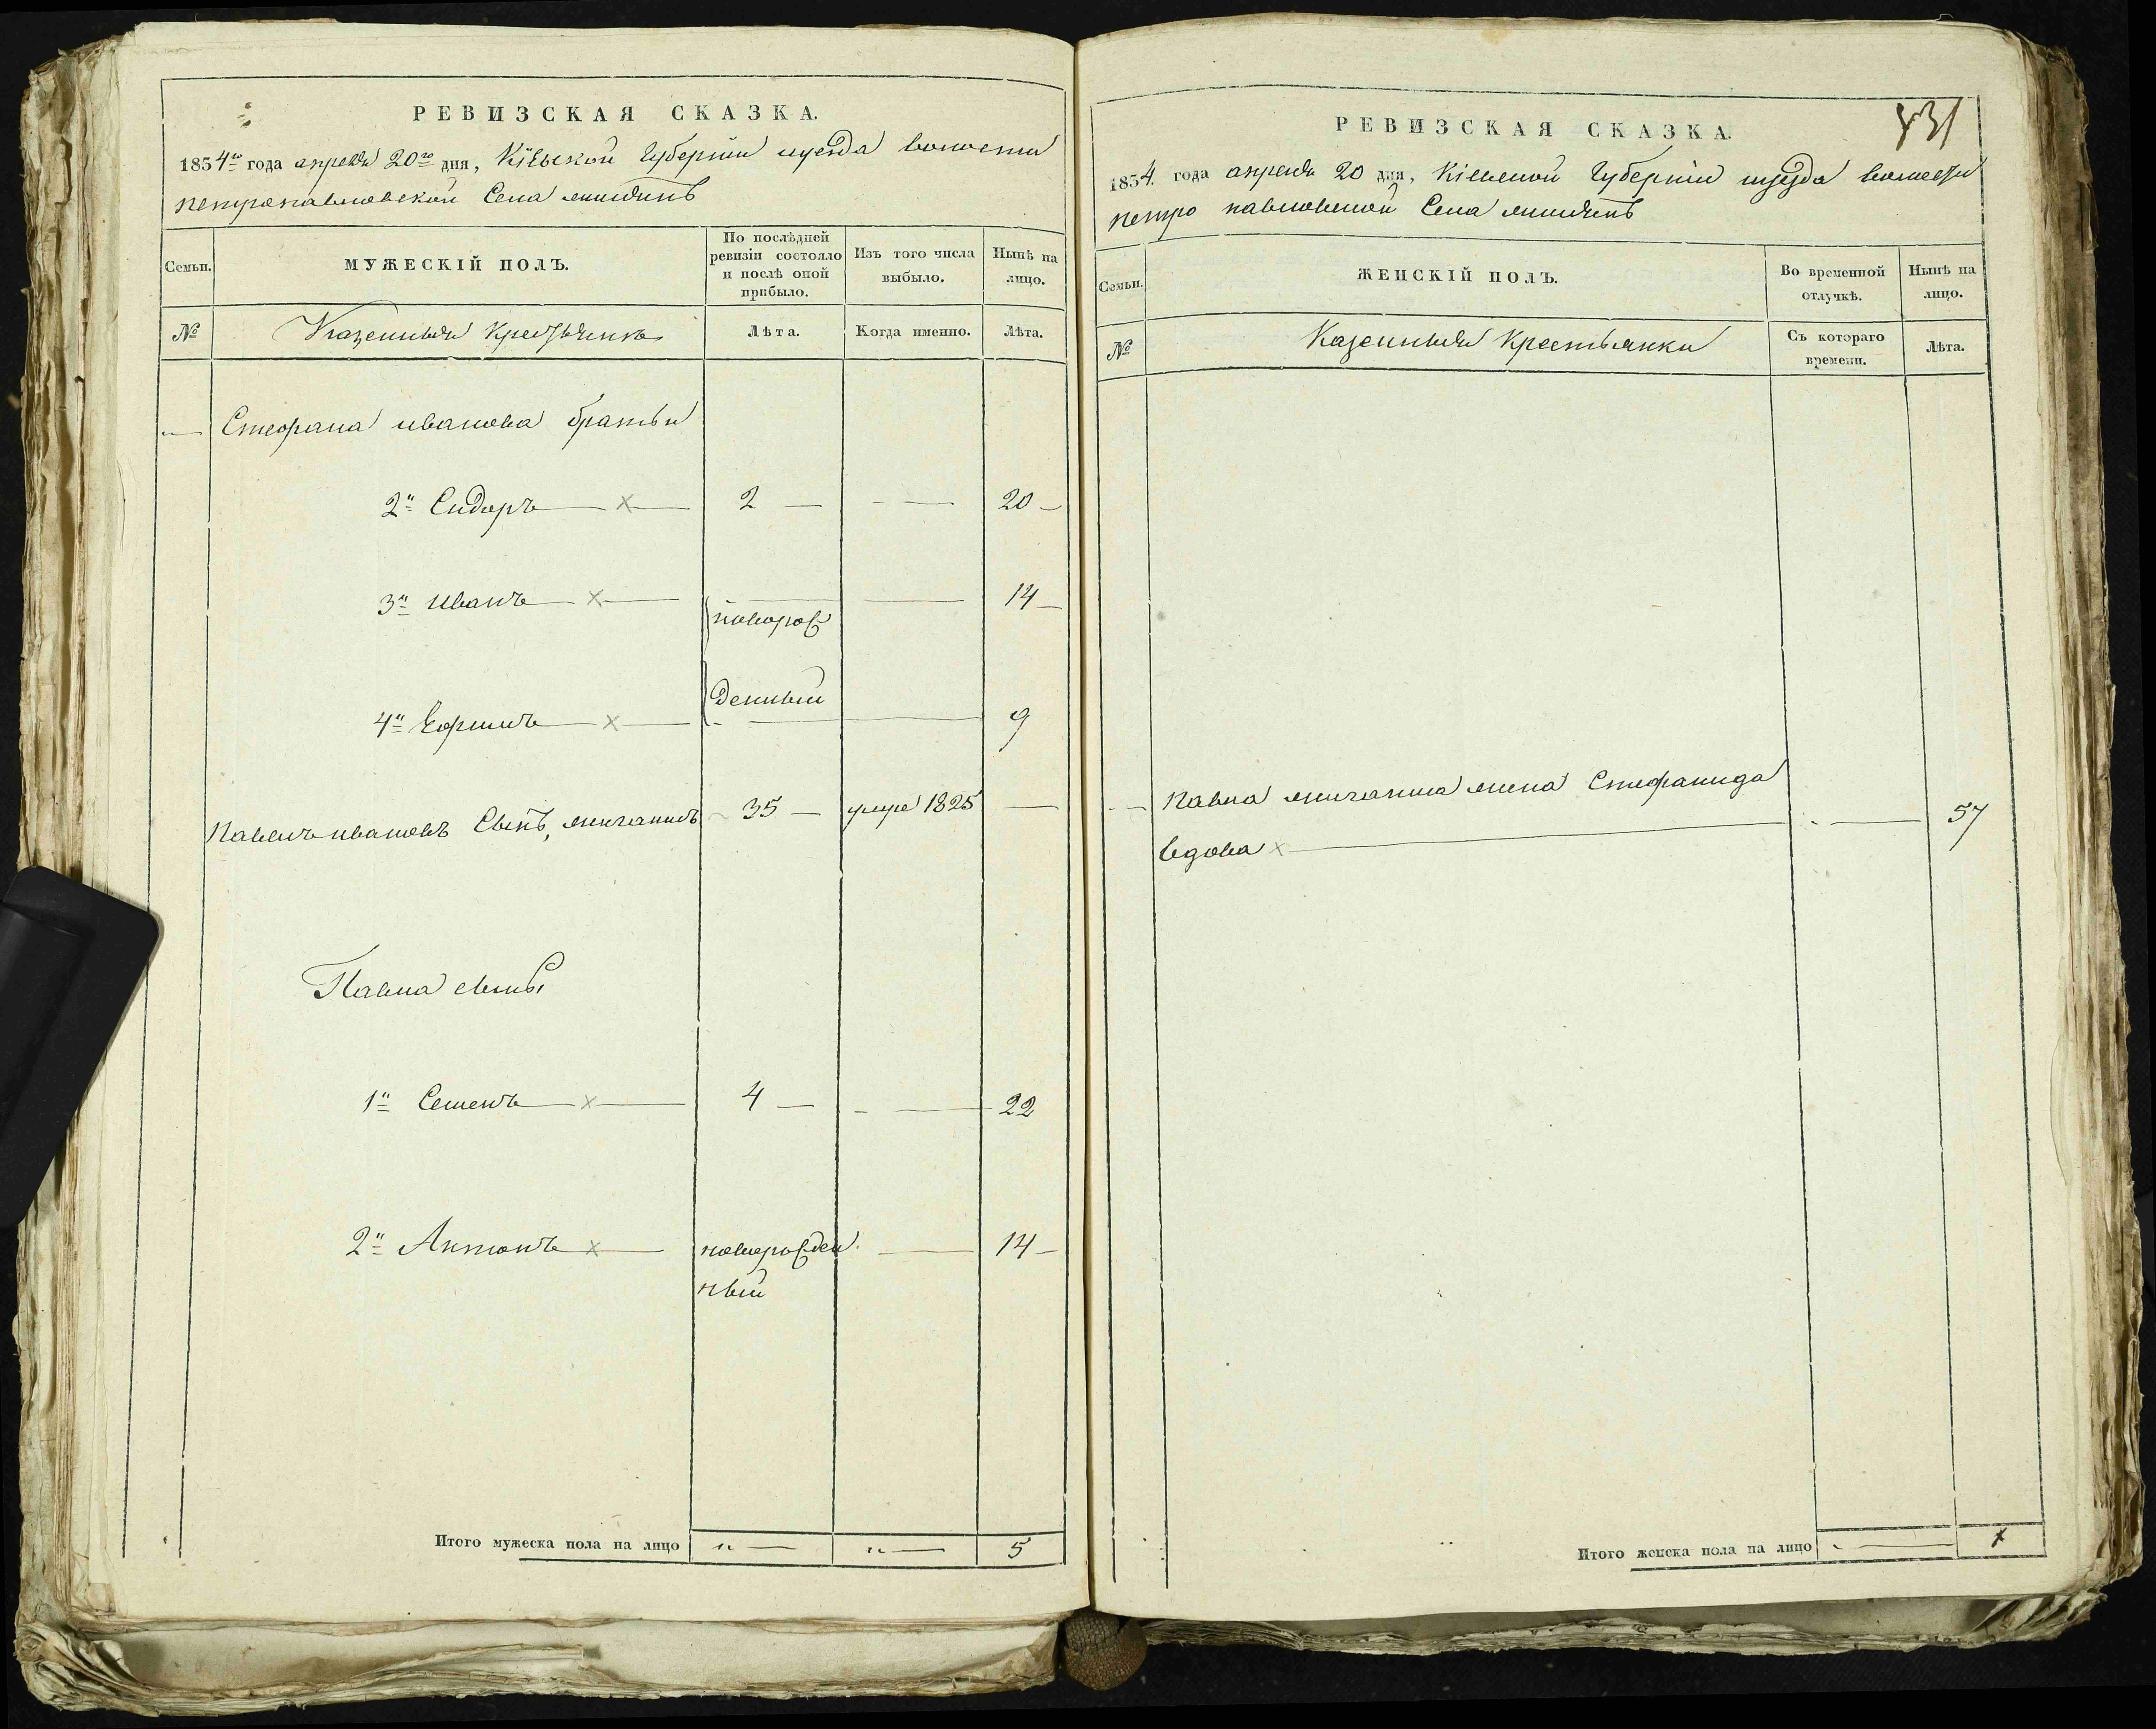 РЕВИЗСКАЯ СКАЗКА.
1834го года апреля 20го дня, Кіевской Губерніи уезда волости
петропавловской Села
Семьи.
МУЖЕСКІЙ ПОЛЪ.
По послѣдней ревизіи состояло и послѣ оной прибыло.
Изъ того числа выбыло.
Нынѣ на лицо.
№
Казенныя Крестьяне
Лѣта.
Когда именно.
Лѣта.
Стефана иванова братьи
2й Сидоръ — х — 2 — — 20 —
3й иванъ — х — — 14 —
новорож
денный
4й Ефимъ — х — — 9
Павелъ ивановъ Сынъ, 35 — умре 1825 —
Павла сыны
1й Семенъ — х — 4 — — 22
2й Антонъ х — новорожден — 14 —
ный
Итого мужеска пола на лицо " — " — 5
431
РЕВИЗСКАЯ СКАЗКА.
1834. года апреля 20 дня, Кіевской Губерніи уезда волости
петро павловской Села
Семьи.
ЖЕНСКІЙ ПОЛЪ.
Во временной отлучкѣ.
Нынѣ на лицо.
№
Казенныя Крестьянки
Съ котораго времени.
Лѣта.
Павла жена Стефанида
вдова х — — 57
Итого женска пола на лицо — 1